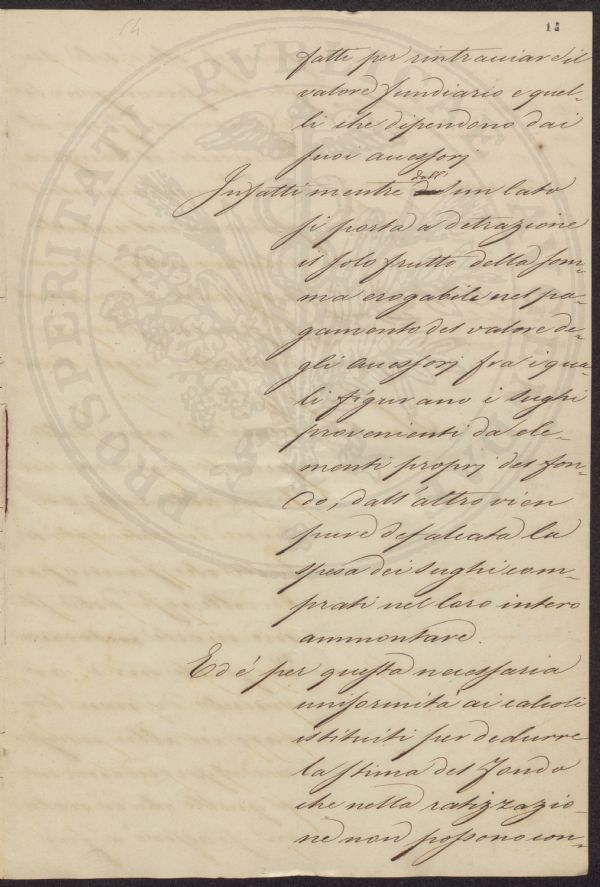 14
15
fatti per rintracciare il
valore fundiario e quel-
li che dipendono dai
suoi accessorj
dall'
Infatti mentre un lato
si porta a detrazione
il solo frutto della som-
ma erogabile nel pa-
gamento del valore de-
gli accessorj fra i qua-
li figurano i sughi
provenienti da ele-
menti proprj del fon-
do, dall'altro vien
pure defalcata la
spesa dei sughi com-
prati nel loro intero
ammontare.
Ed è per questa necessaria
uniformità ai calcoli
istituiti per dedurre
la stima del Fondo
che nella ratizzazio-
ne non possono con-
PROSPERITATI PVBLICAE